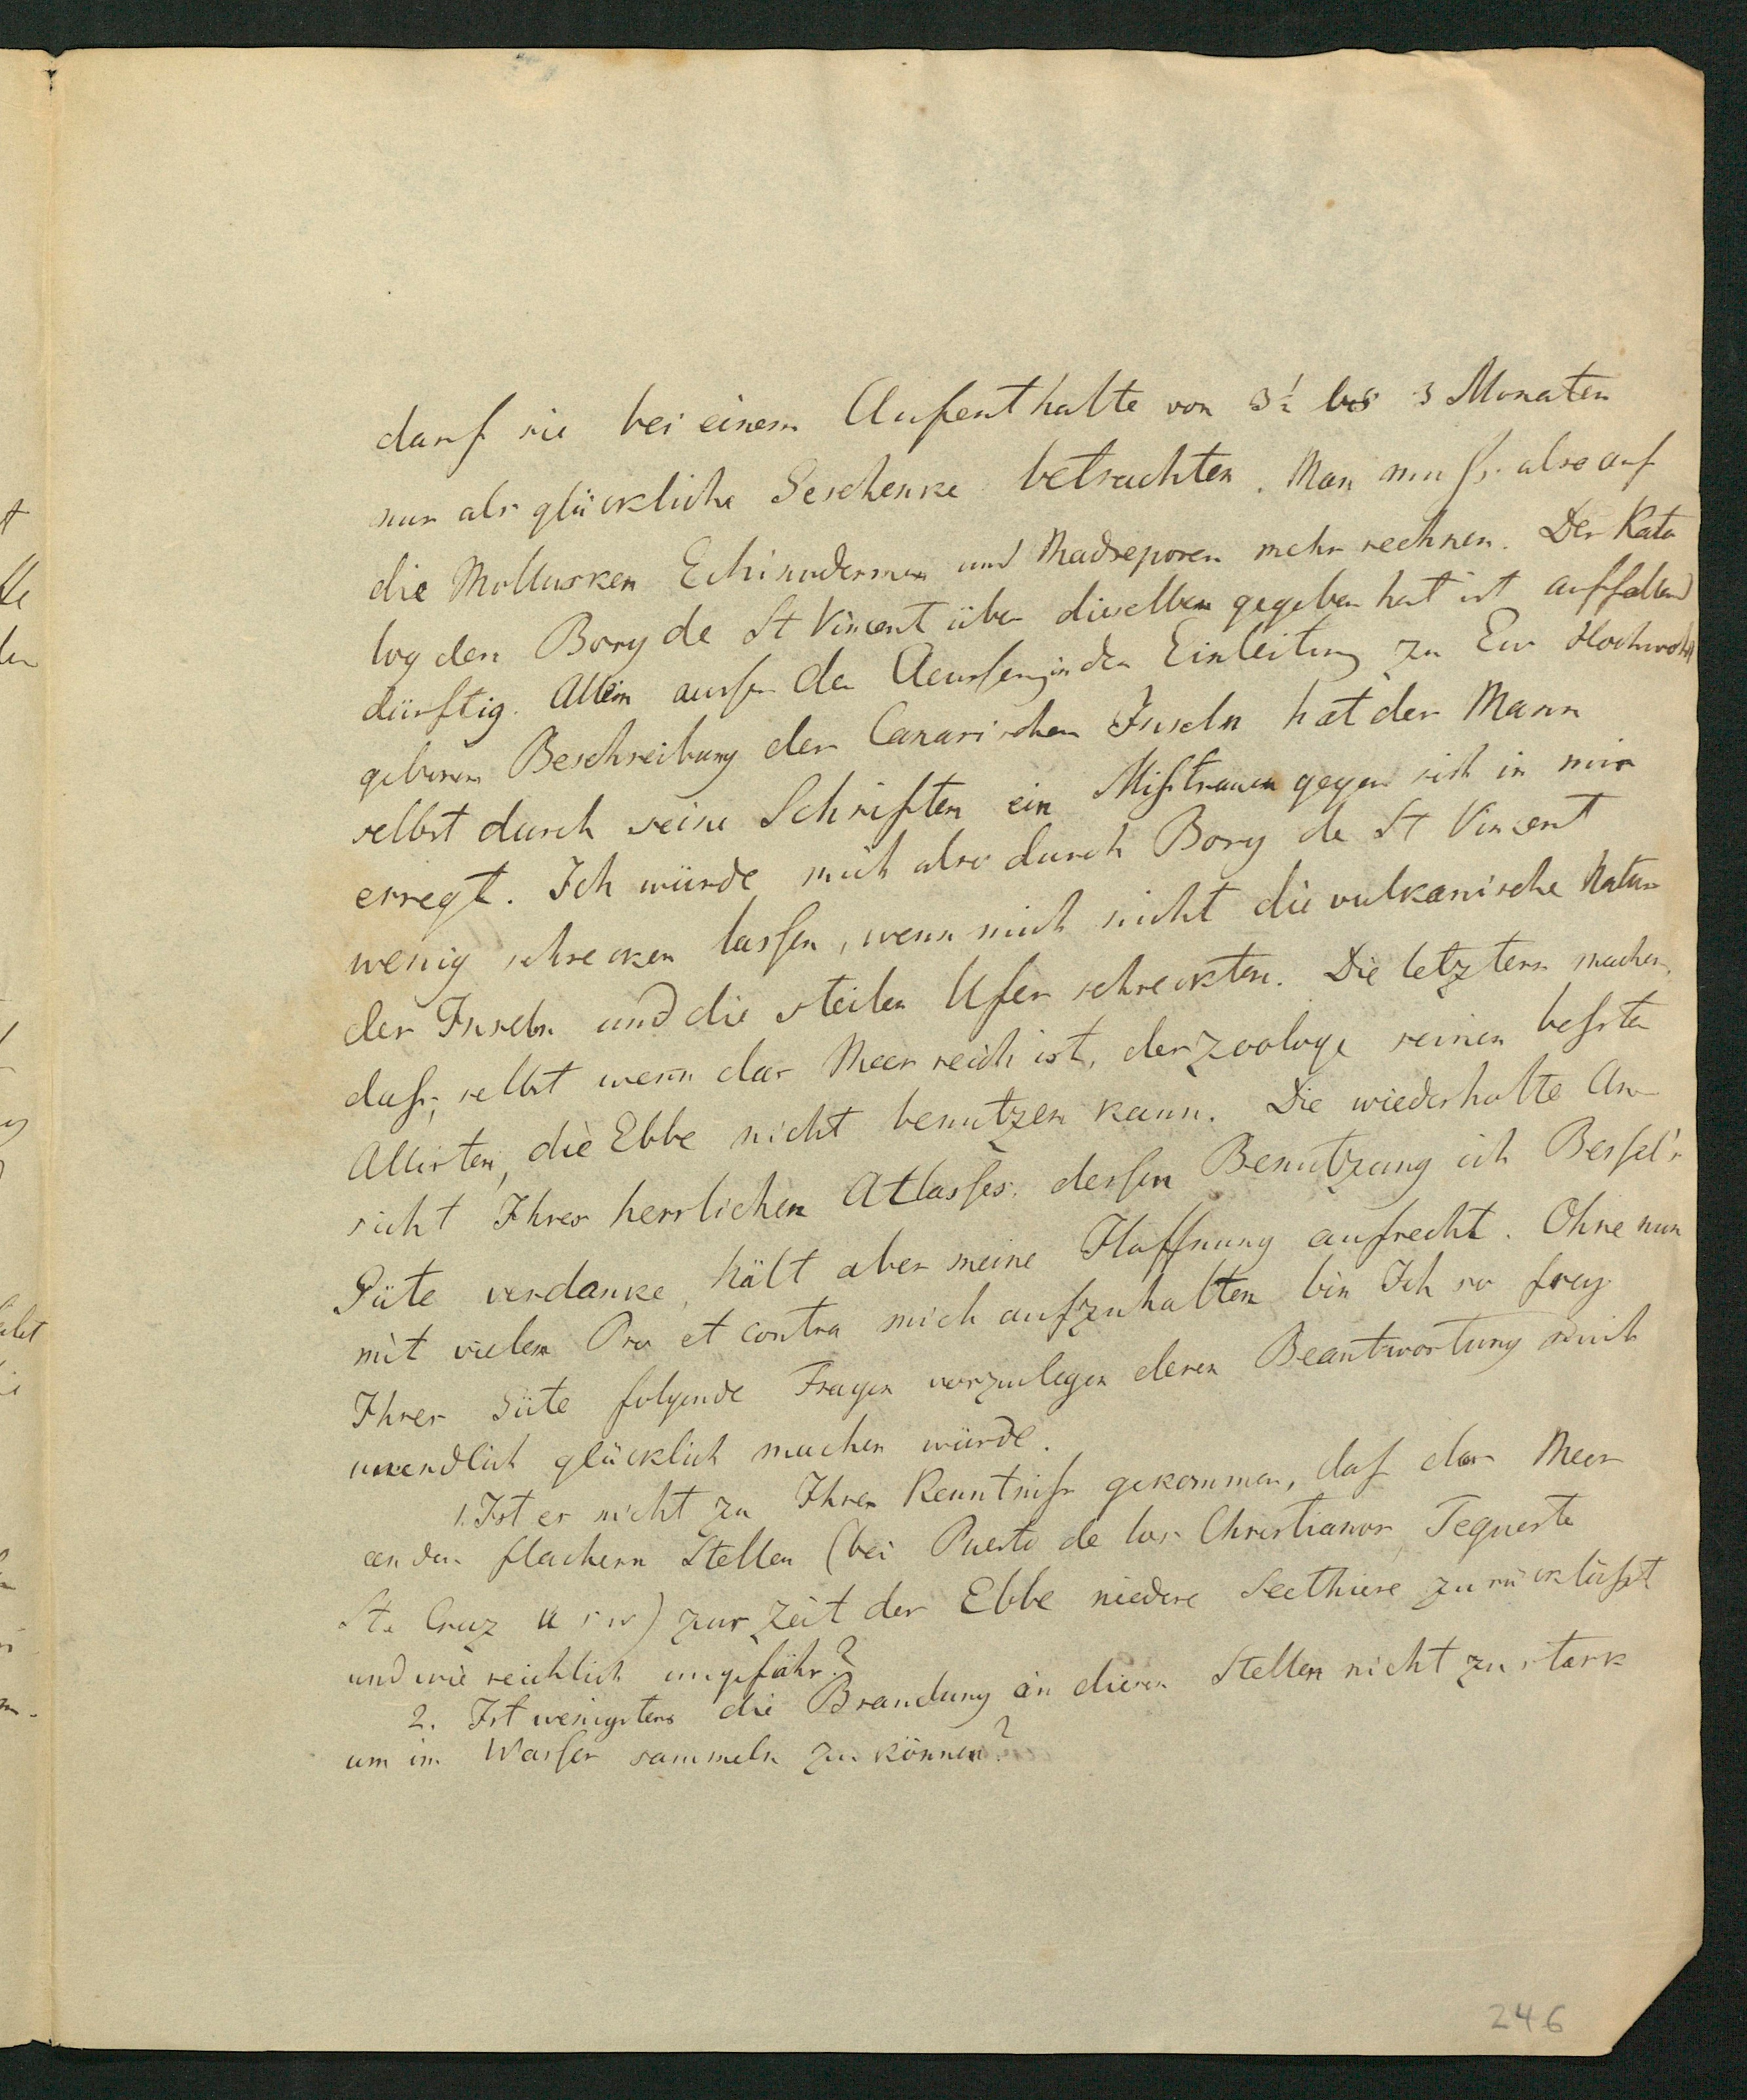 darf sie bei einem Aufenthalte von 3½ bis 3 Monaten
nur als glückliche Geschenke betrachten. Man muß also auf
die Mollusken Echinodermen und Madreporen mehr rechnen. Der Kata
log den Bory de St Vincent über dieselben gegeben hat ist auffallend
dürftig. Allein außer der in der Einleitung zu Ew Hochwohl
gebornen Beschreibung der Canarischen Inseln hat der Mann
selbst durch seine Schriften ein Mißtrauen gegen sich in mir
erregt. Ich würde mich also durch Bory de St Vincent
wenig schrecken lassen, wenn mich nicht die vulkanische Natur
der Inseln und die steilen Ufer schreckten. Die letztern machen,
daß, selbst wenn das Meer reich ist, der Zoologe seinen beßten
Allirten, die Ebbe nicht benutzen kann. Die wiederholte An-
sicht Ihres herrlichen Atlasses dessen Benutzung ich Bessel's
Güte verdanke, hält aber meine Hoffnung aufrecht. Ohne nun
mit vielem Pro et contra mich aufzuhalten bin Ich so frey
Ihrer Güte folgende Fragen vorzulegen deren Beantwortung mich
unendlich glücklich machen würde.
1. Ist es nicht zu Ihrer Kenntniß gekommen, daß das Meer
an den flachern Stellen (bei Puerto de los Christianos, Tegueste
St. Cruz u s w) zur Zeit der Ebbe niedere Seethiere zurückläßt
und wie reichlich ungefähr?
2. Ist wenigstens die Brandung an diesen Stellen nicht zu stark
um im Wasser sammeln zu können?
246